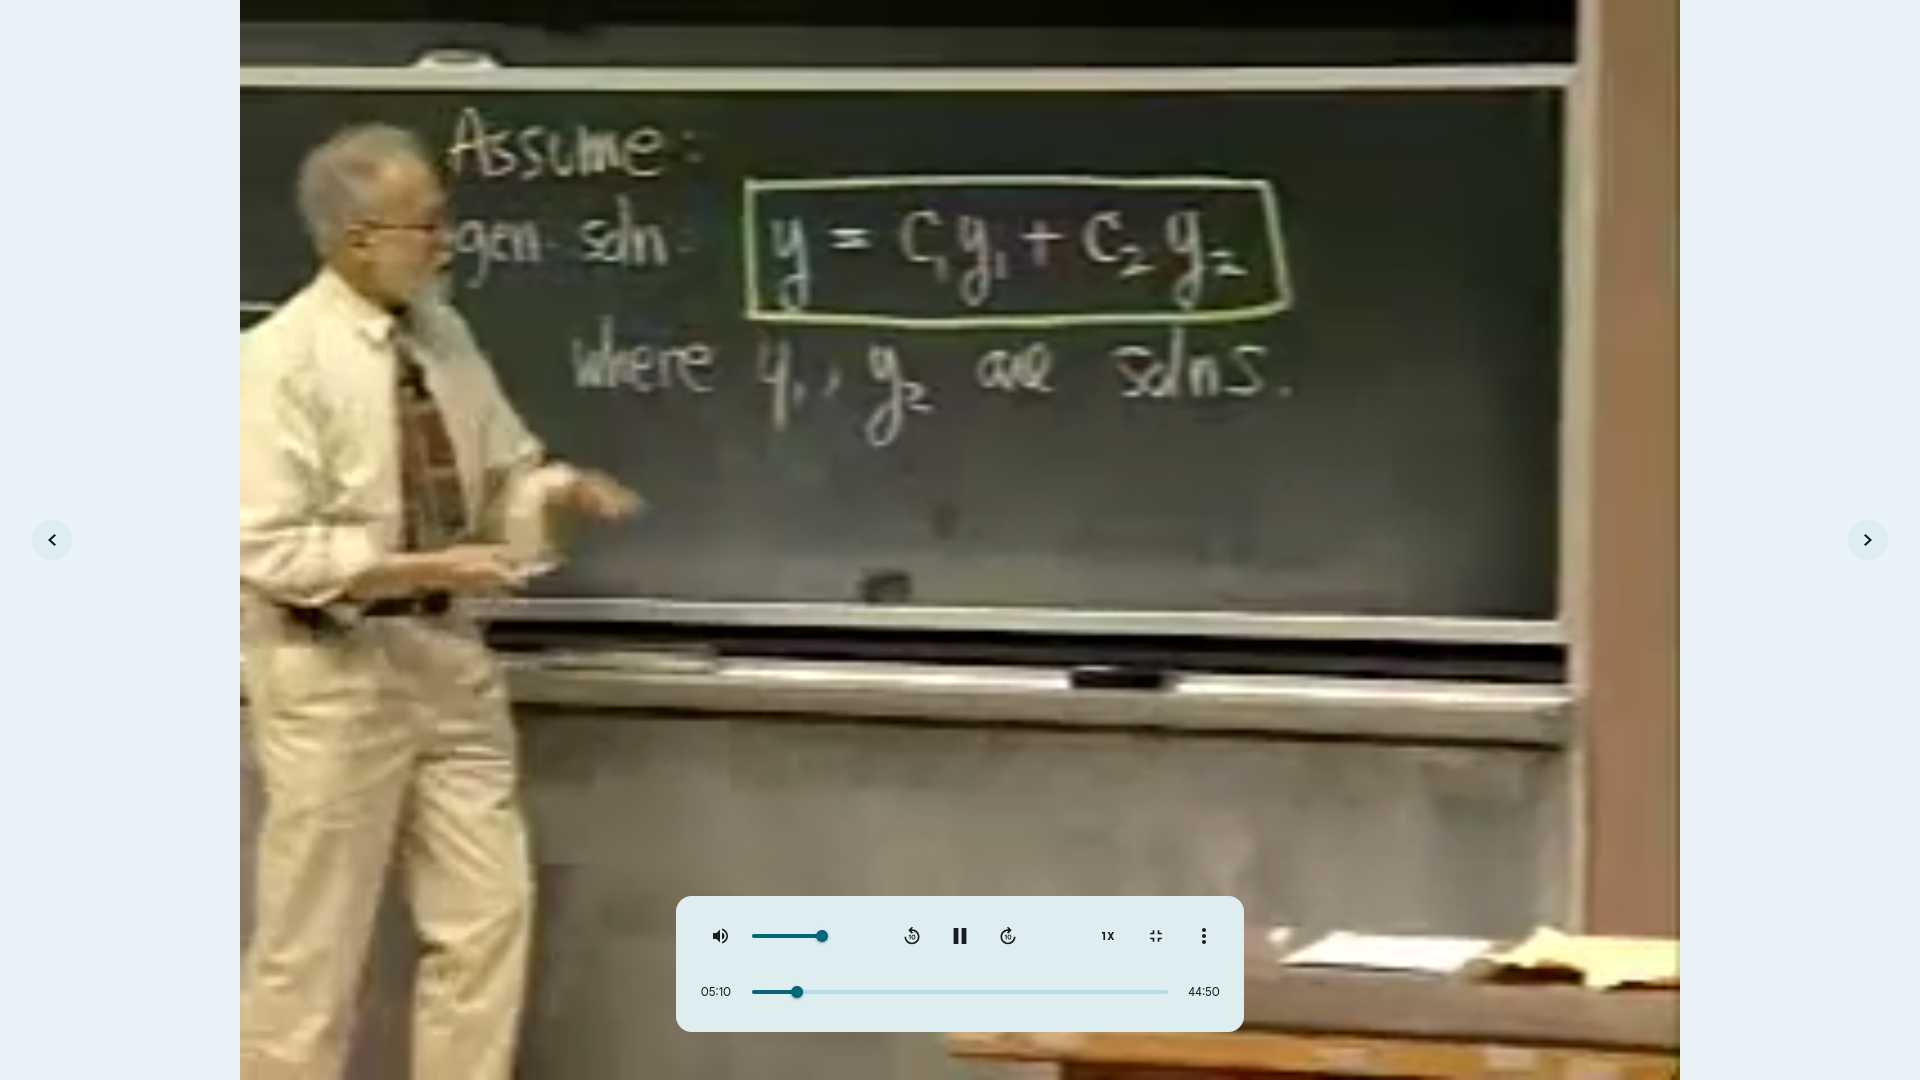 Assume:
gen. soln: y = c₁y₁ + c₂y₂
where y₁, y₂ are solns.
10 10 1X
05:10 44:50